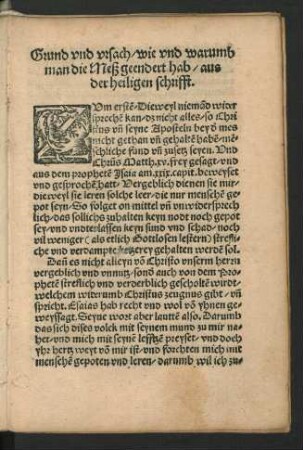 Grund vnd vrsach/ wie vnd warumb
man die Meß geendert hab/ aus
der heiligen schrifft.
Vm erstē. Dieweyl niemād wider
sprechē kan/ dz nicht alles/ so Chri
stus vñ seyne Aposteln bey d mes
nicht gethan vñ gehaltē habē/ me
schliche fund vñ zusetz seyen. Vnd
Chrūs Matth. xv. frey gesagt/ vnd aus
aus dem prophetē Isaia am .xxix. capit. beweyset
vnd gesprochē hatt. Vergeblich dienen sie mir/
die weyl sie leren solche leer/ die nur menschē ge=
pot seyn/ So folget on mittel vñ vnwidersprech
lich/ das sollichs zuhalten keyn nodt noch gepot
sey/ vnd vnderlassen keyn sünd vnd schad/ noch
vil weniger (als etlich Gottlosen lestern) strefli=
che vnd verdampte ketzerey gehalten werdē sol.
Dañ es nicht alleyn vō Christo vnserm herrn
vergeblich vnd vnnutz/ sond auch von dem Pro=
phetē streflich vnd verderblich gescholtē wirdt/
welchem widerumb Christus zeugnus gibt/ vñ
spricht. Esaias hab recht vnd wol vō yhnen ge=
weyssagt. Seyne wort aber lauttē also. Darumb
das sich dises volck mit seynem mund zu mir na=
het/ vnd mich mit seynē lefftzē preyset/ vnd doch
yhr hertz weyt vō mir ist/ vnd forchten mich mit
menschē gepoten vnd leren/ darumb wil ich zu=